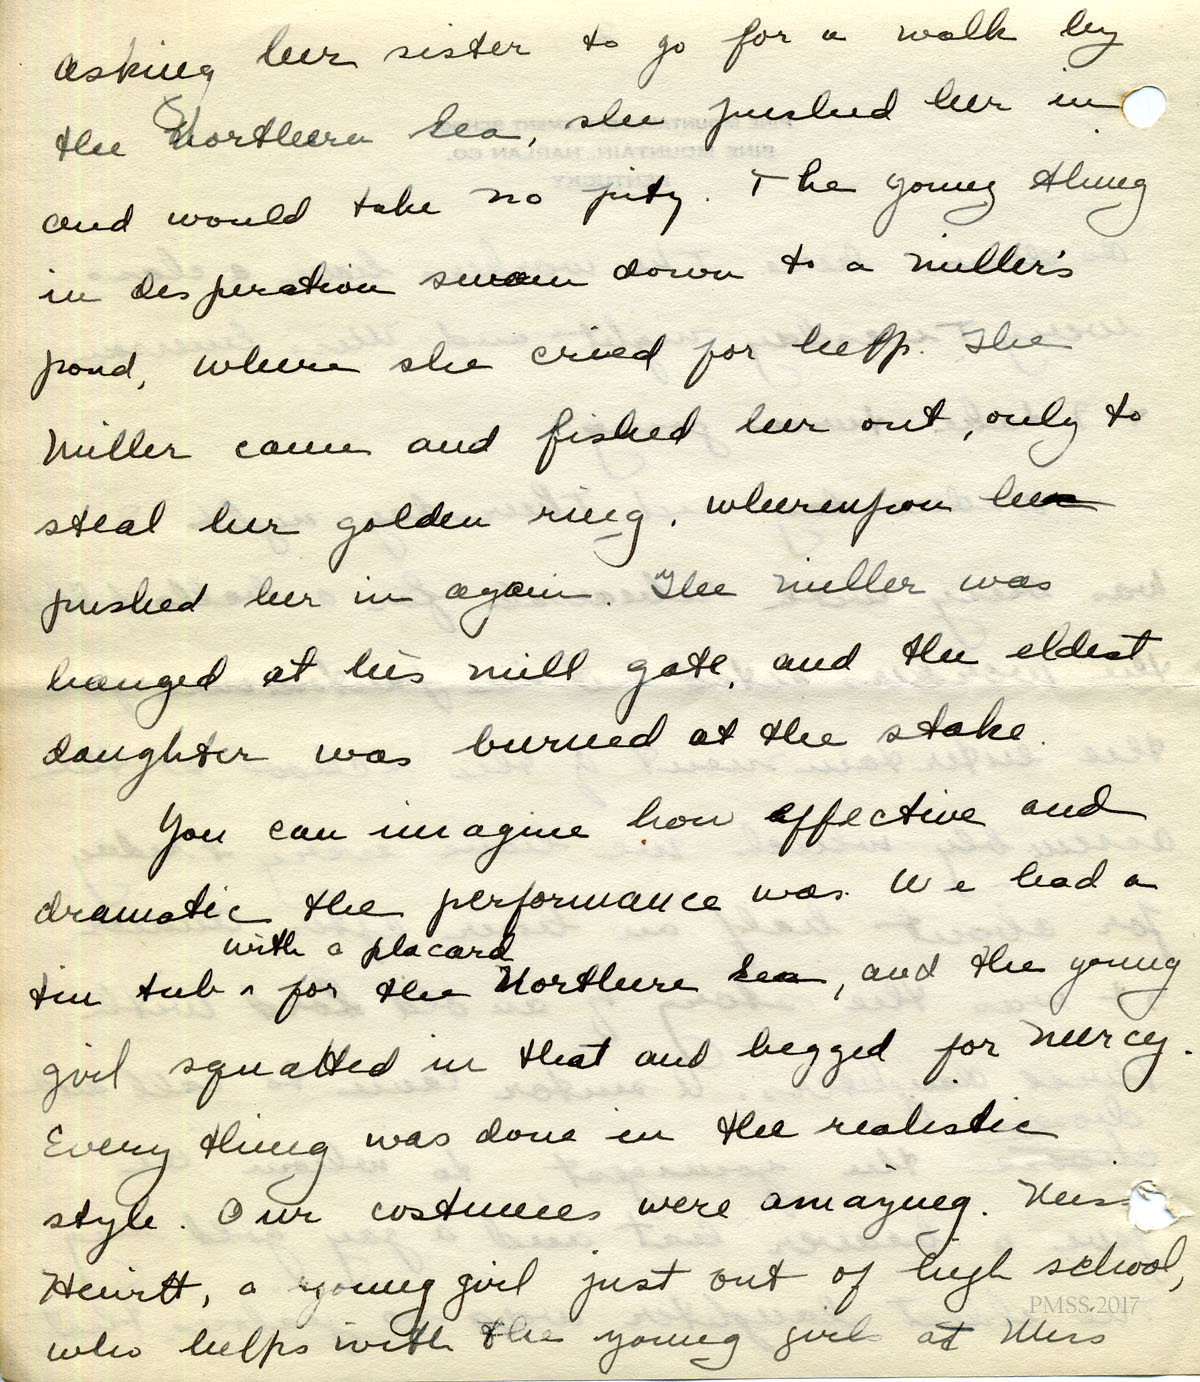 asking her sister to go for a walk by
the Northern Sea, she pushed her in
and would take no pity. The young thing
in desperation swam down to a miller's
pond, where she cried for help. The
Miller came and fished her out, only to
steal her golden ring, whereupon he
pushed her in again. The miller was
hanged at his mill gate, and the eldest
daughter was burned at the stake.
You can imagine how effective and
dramatic the performance was. We had a
with a placard
tin tub ^ for the Northern Sea, and the young
girl squatted in that and begged for mercy.
Every thing was done in the realistic
style. Our costumes were amazing. Miss
Hewitt, a young girl just out of high school,
PMSS 2017
who helps with the young girls at Miss